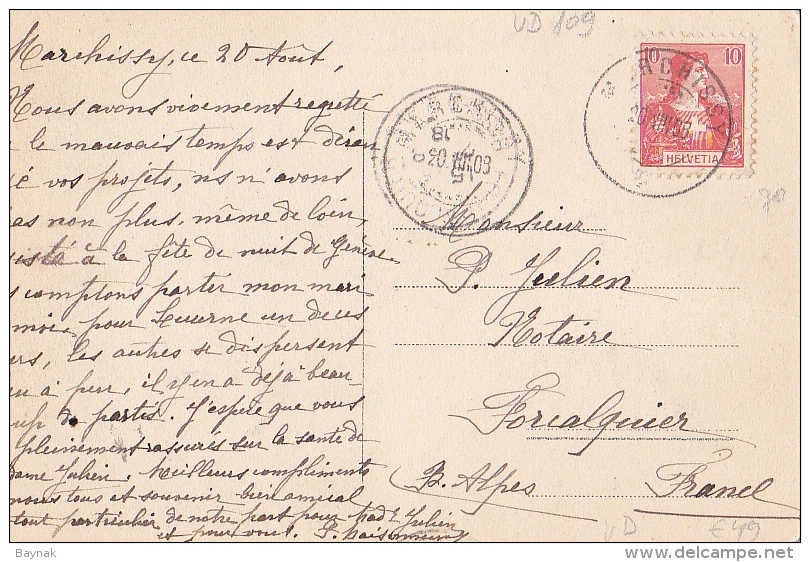 VD 109
Marchissy, ce 20 Août,
Nous avons vivement regretté
le mauvais temps est déran
é vos projets, ns n'avons
as non plus, même de loin,
isté à la fête de nuit de Genève
s comptons partir mon mari
moi, pour Lucerne un de ces
rs, les autres se dispersent
eu à peu, il y en a déjà beau-
up de partis. J'espère que vous
pleinement rassurés sur la santé de
dame Julien. Meilleurs compliments
nous tous et souvenir bien amical
tout particulier de notre part pour Mad. Julien
et pour vous.
10 10
HELVETIA
MARCHISSY
20.VIII.08
MARCHISSY
20.VIII.08
Monsieur
P. Julien
Notaire
Forcalquier
B. Alpes France
VD
€49
Baynak
www.delcampe.net